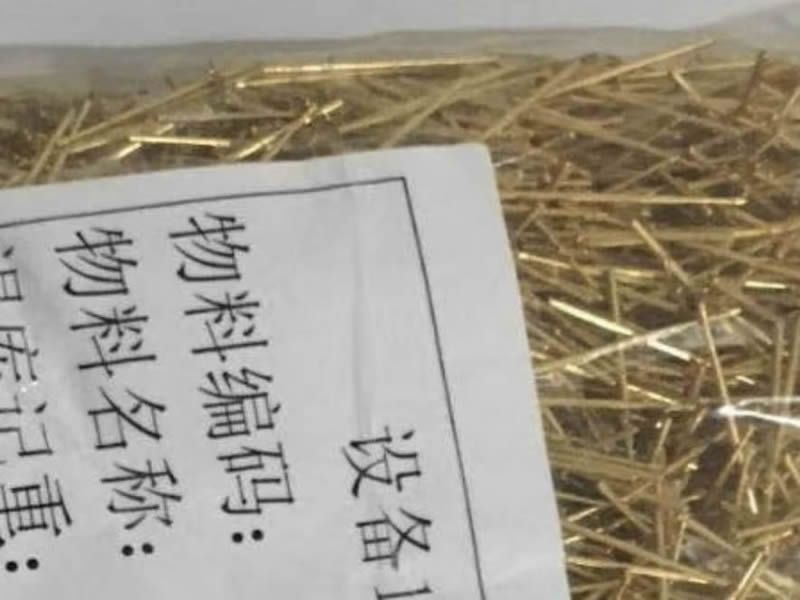 设备1
物料编码:
物料名称:
重: